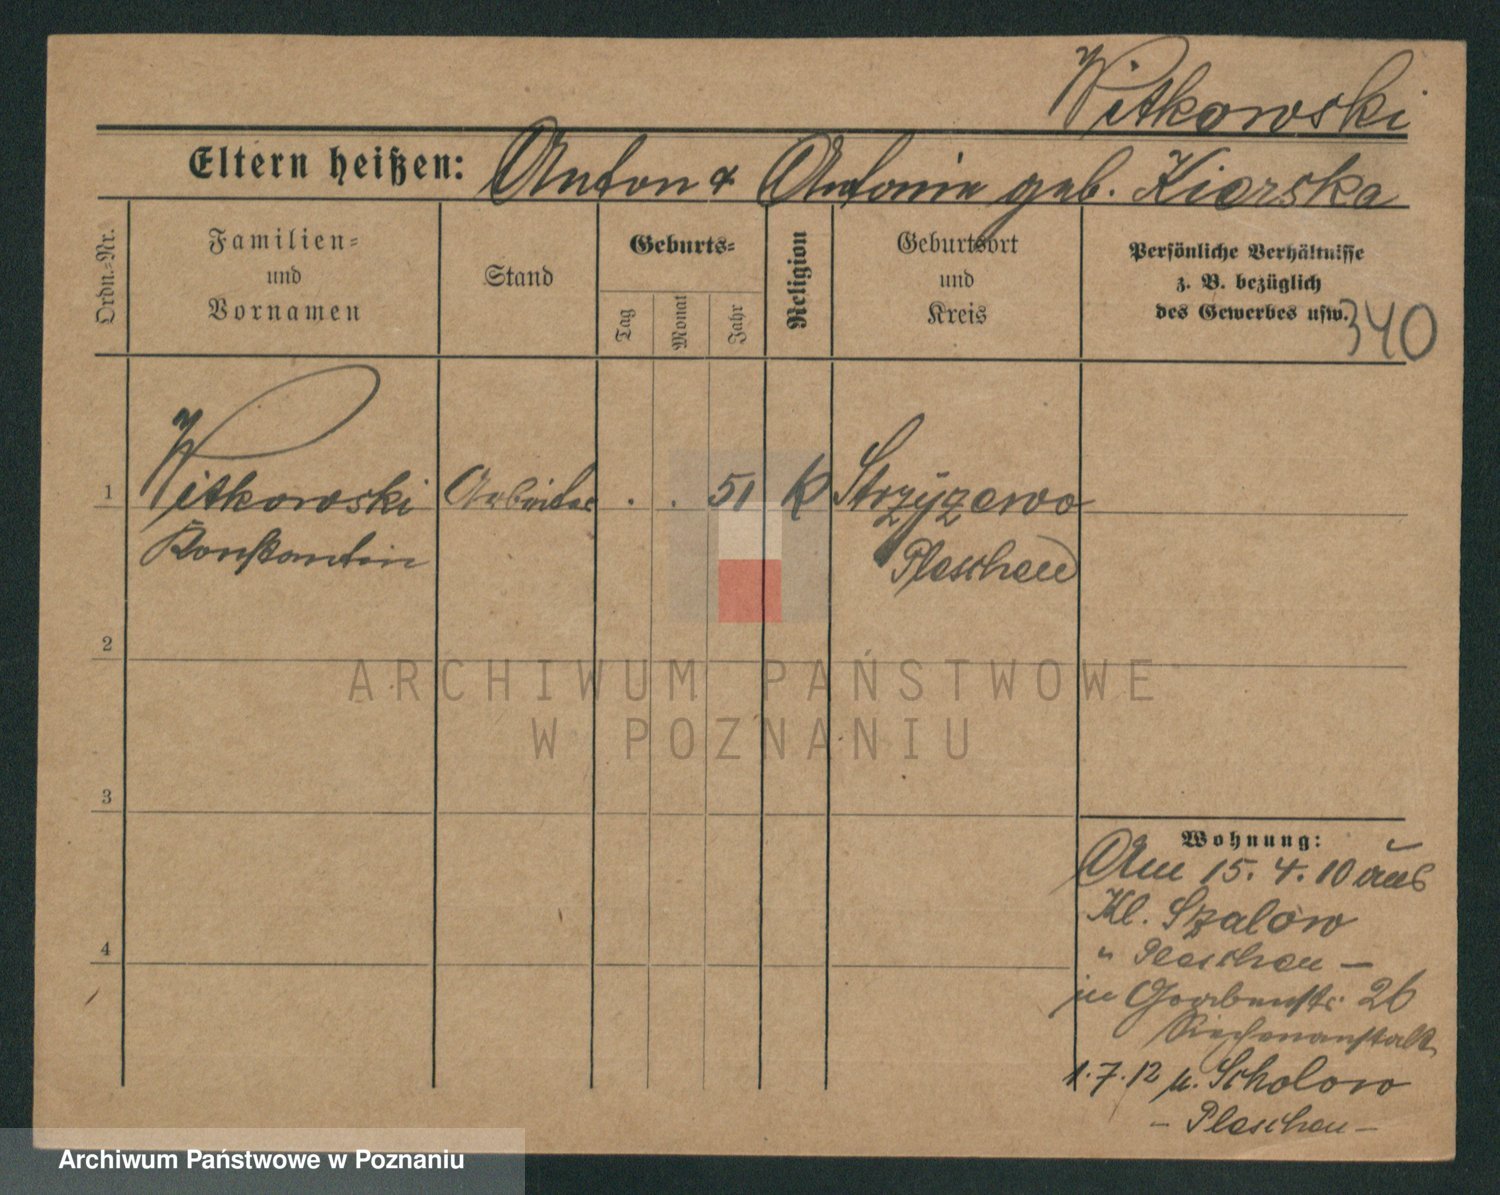 Witkowski
Eltern heißen: Anton & Antonie geb. Kierska
Ordn.-Nr.
Familien-
und
Vornamen
Stand
Geburts-
Tag
Monat
Jahr
Religion
Geburtsort
und
Kreis
Persönliche Verhältnisse
z. B. bezüglich
des Gewerbes usw.
340
1 Witkowski Arbeiter . . 51 K Strzyzewo
Konstantin Pleschen
2
3
4
Wohnung:
Am 15. 4. 10 aus
Kl. Szalow
" Pleschen —
in Grabenstr. 26
Siechenanstalt
1. 7. 12 n. Scholow
– Pleschen –
ARCHIWUM PAŃSTWOWE
W POZNANIU
Archiwum Państwowe w Poznaniu